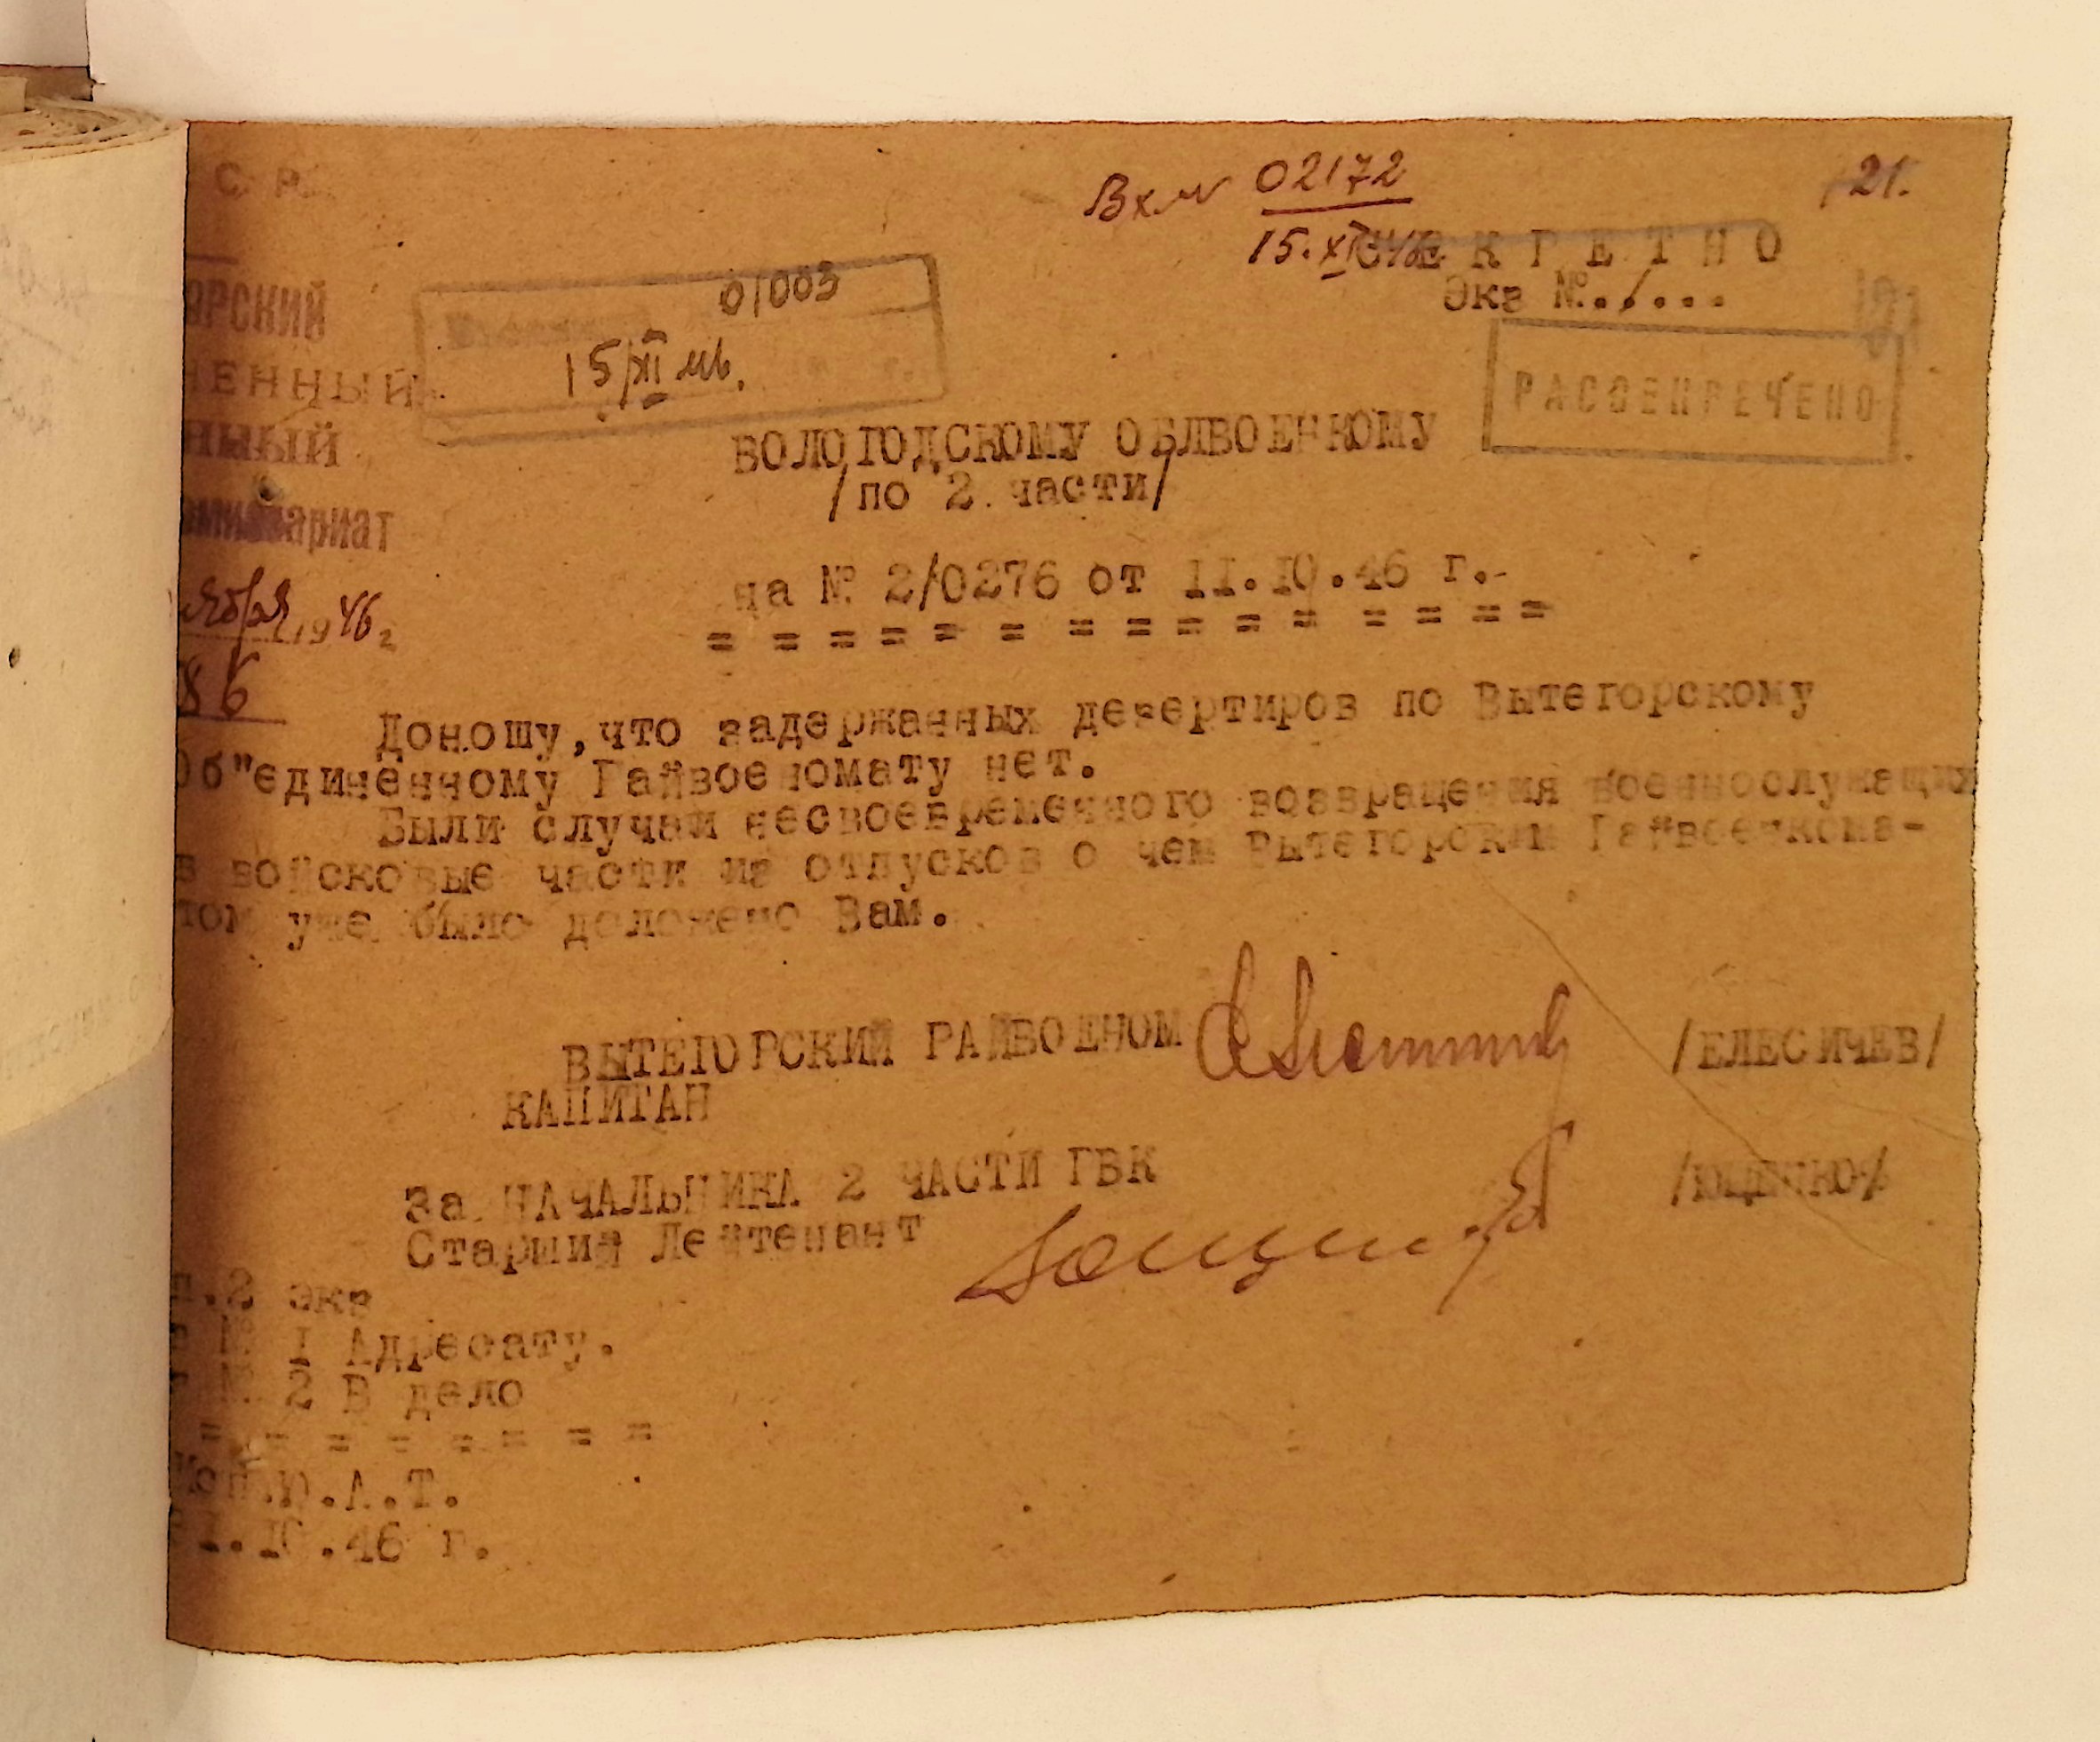 С. Р.
Вх № 02172
15.XII 46
21.
СЕКРЕТНО
Экз №./...
01003
15/XII 46.
РАСОЕКРЕЧЕНО
ОРСКИЙ
НЕННЫЙ
ННЫЙ
омиссариат
ВОЛОГОДСКОМУ ОБЛВОЕНКОМУ
/по 2 части/
на № 2/0276 от 11.10.46 г.-
= = = = = = = = = = = = = =
ября 1946 г
86
Доношу,что задержанных дезертиров по Вытегорскому
Об"единенному Райвоеномату нет.
Были случаи несвоевременного возвращения военнослужащих
в войсковые части из отпусков о чем Вытегорским Райвоенкома-
том уже было доложено Вам.
ВЫТЕГОРСКИЙ РАЙВОЕНОМ
/ЕЛЕСИЧЕВ/
КАПИТАН
За НАЧАЛЬНИКА 2 ЧАСТИ РВК
Старший Лейтенант
.2 экз
№ 1 Адресату.
№ 2 В дело
= = = = = = = =
.Ю.А.Т.
1.10.46 г.